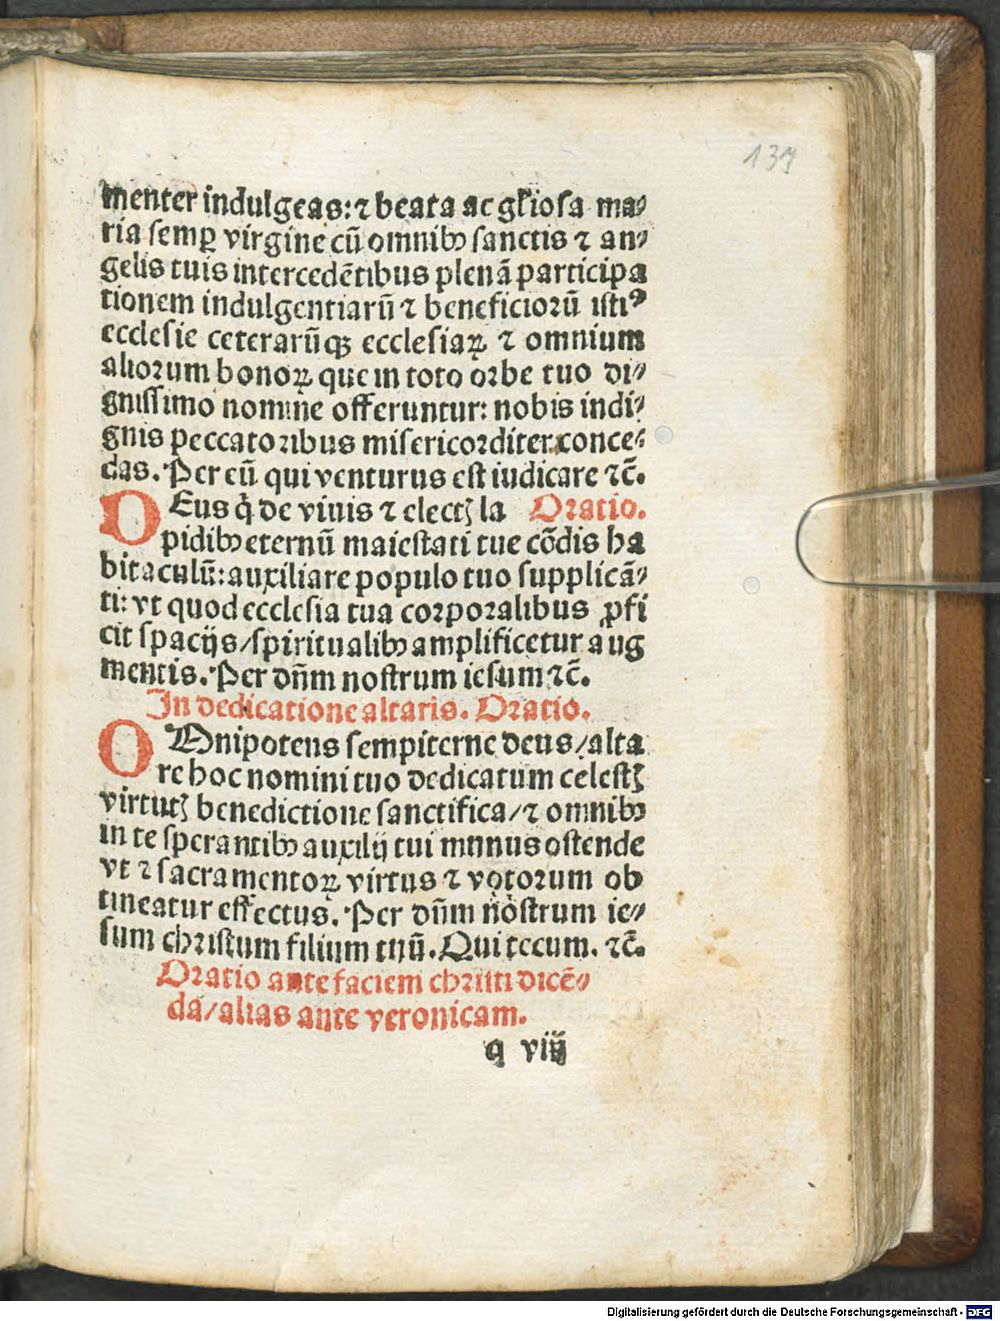 137
menter indulgeas: ⁊ beata ac gl̄iosa ma⸗
ria semꝑ virgine cū omnibꝰ sanctis ⁊ an⸗
gelis tuis intercedētibus plenā participa
tionem indulgentiarū ⁊ beneficiorū istiꝰ
ecclesie ceterarūqꝫ ecclesiaꝝ ⁊ omnium
aliorum bonoꝝ que in toto orbe tuo di⸗
gnissimo nomine offeruntur: nobis indi⸗
gnis peccatoribus misericorditer conce⸗
das. Per eū qui venturus est iudicare ⁊c̄.
DEus q̇ de viuis ⁊ electꝭ la Oratio.
pidibꝰ eternū maiestati tue cōdis ha
bitaculū: auxiliare populo tuo supplicā⸗
ti: vt quod ecclesia tua corporalibus ꝓfi
cit spacijs/spiritualibꝰ amplificetur aug
mentis. Per dn̄m nostrum iesum ⁊c̄.
In dedicatione altaris. Oratio.
OMnipotens sempiterne deus/alta
re hoc nomini tuo dedicatum celestꝭ
virtutꝭ benedictione sanctifica/⁊ omnibꝰ
in te sperantibꝰ auxilij tui munus ostende
vt ⁊ sacramentoꝝ virtus ⁊ votorum ob
tineatur effectus. Per dn̄m nostrum ie⸗
sum christum filium tuū. Qui tecum. ⁊c̄.
Oratio ante faciem christi dicē⸗
da/alias ante veronicam.
q viij
Digitalisierung gefördert durch die Deutsche Forschungsgemeinschaft - DFG